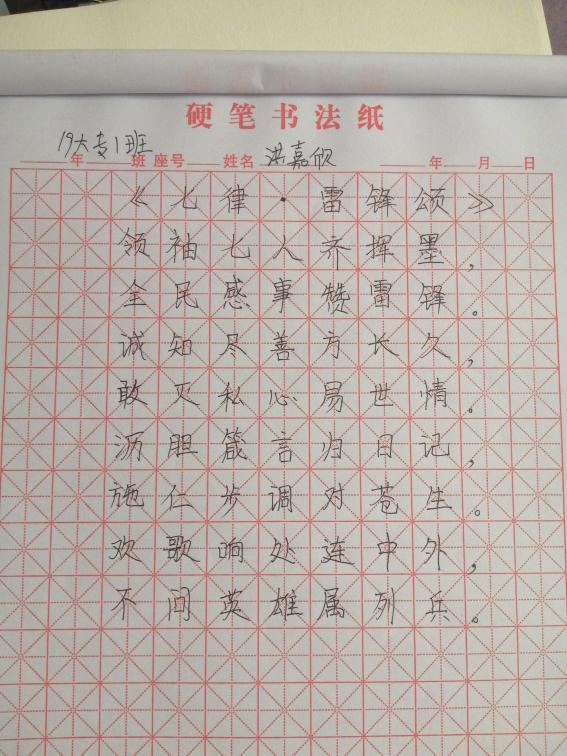 硬笔书法纸
19大专1班
年 班 座号 姓名 洪嘉欣 年 月 日
《七律·雷锋颂》
领袖七人齐挥墨，
全民感事赞雷锋。
诚知尽善方长久，
敢灭私心易世情。
沥胆箴言归日记，
施仁步调对苍生。
欢歌响处连中外，
不问英雄属列兵。